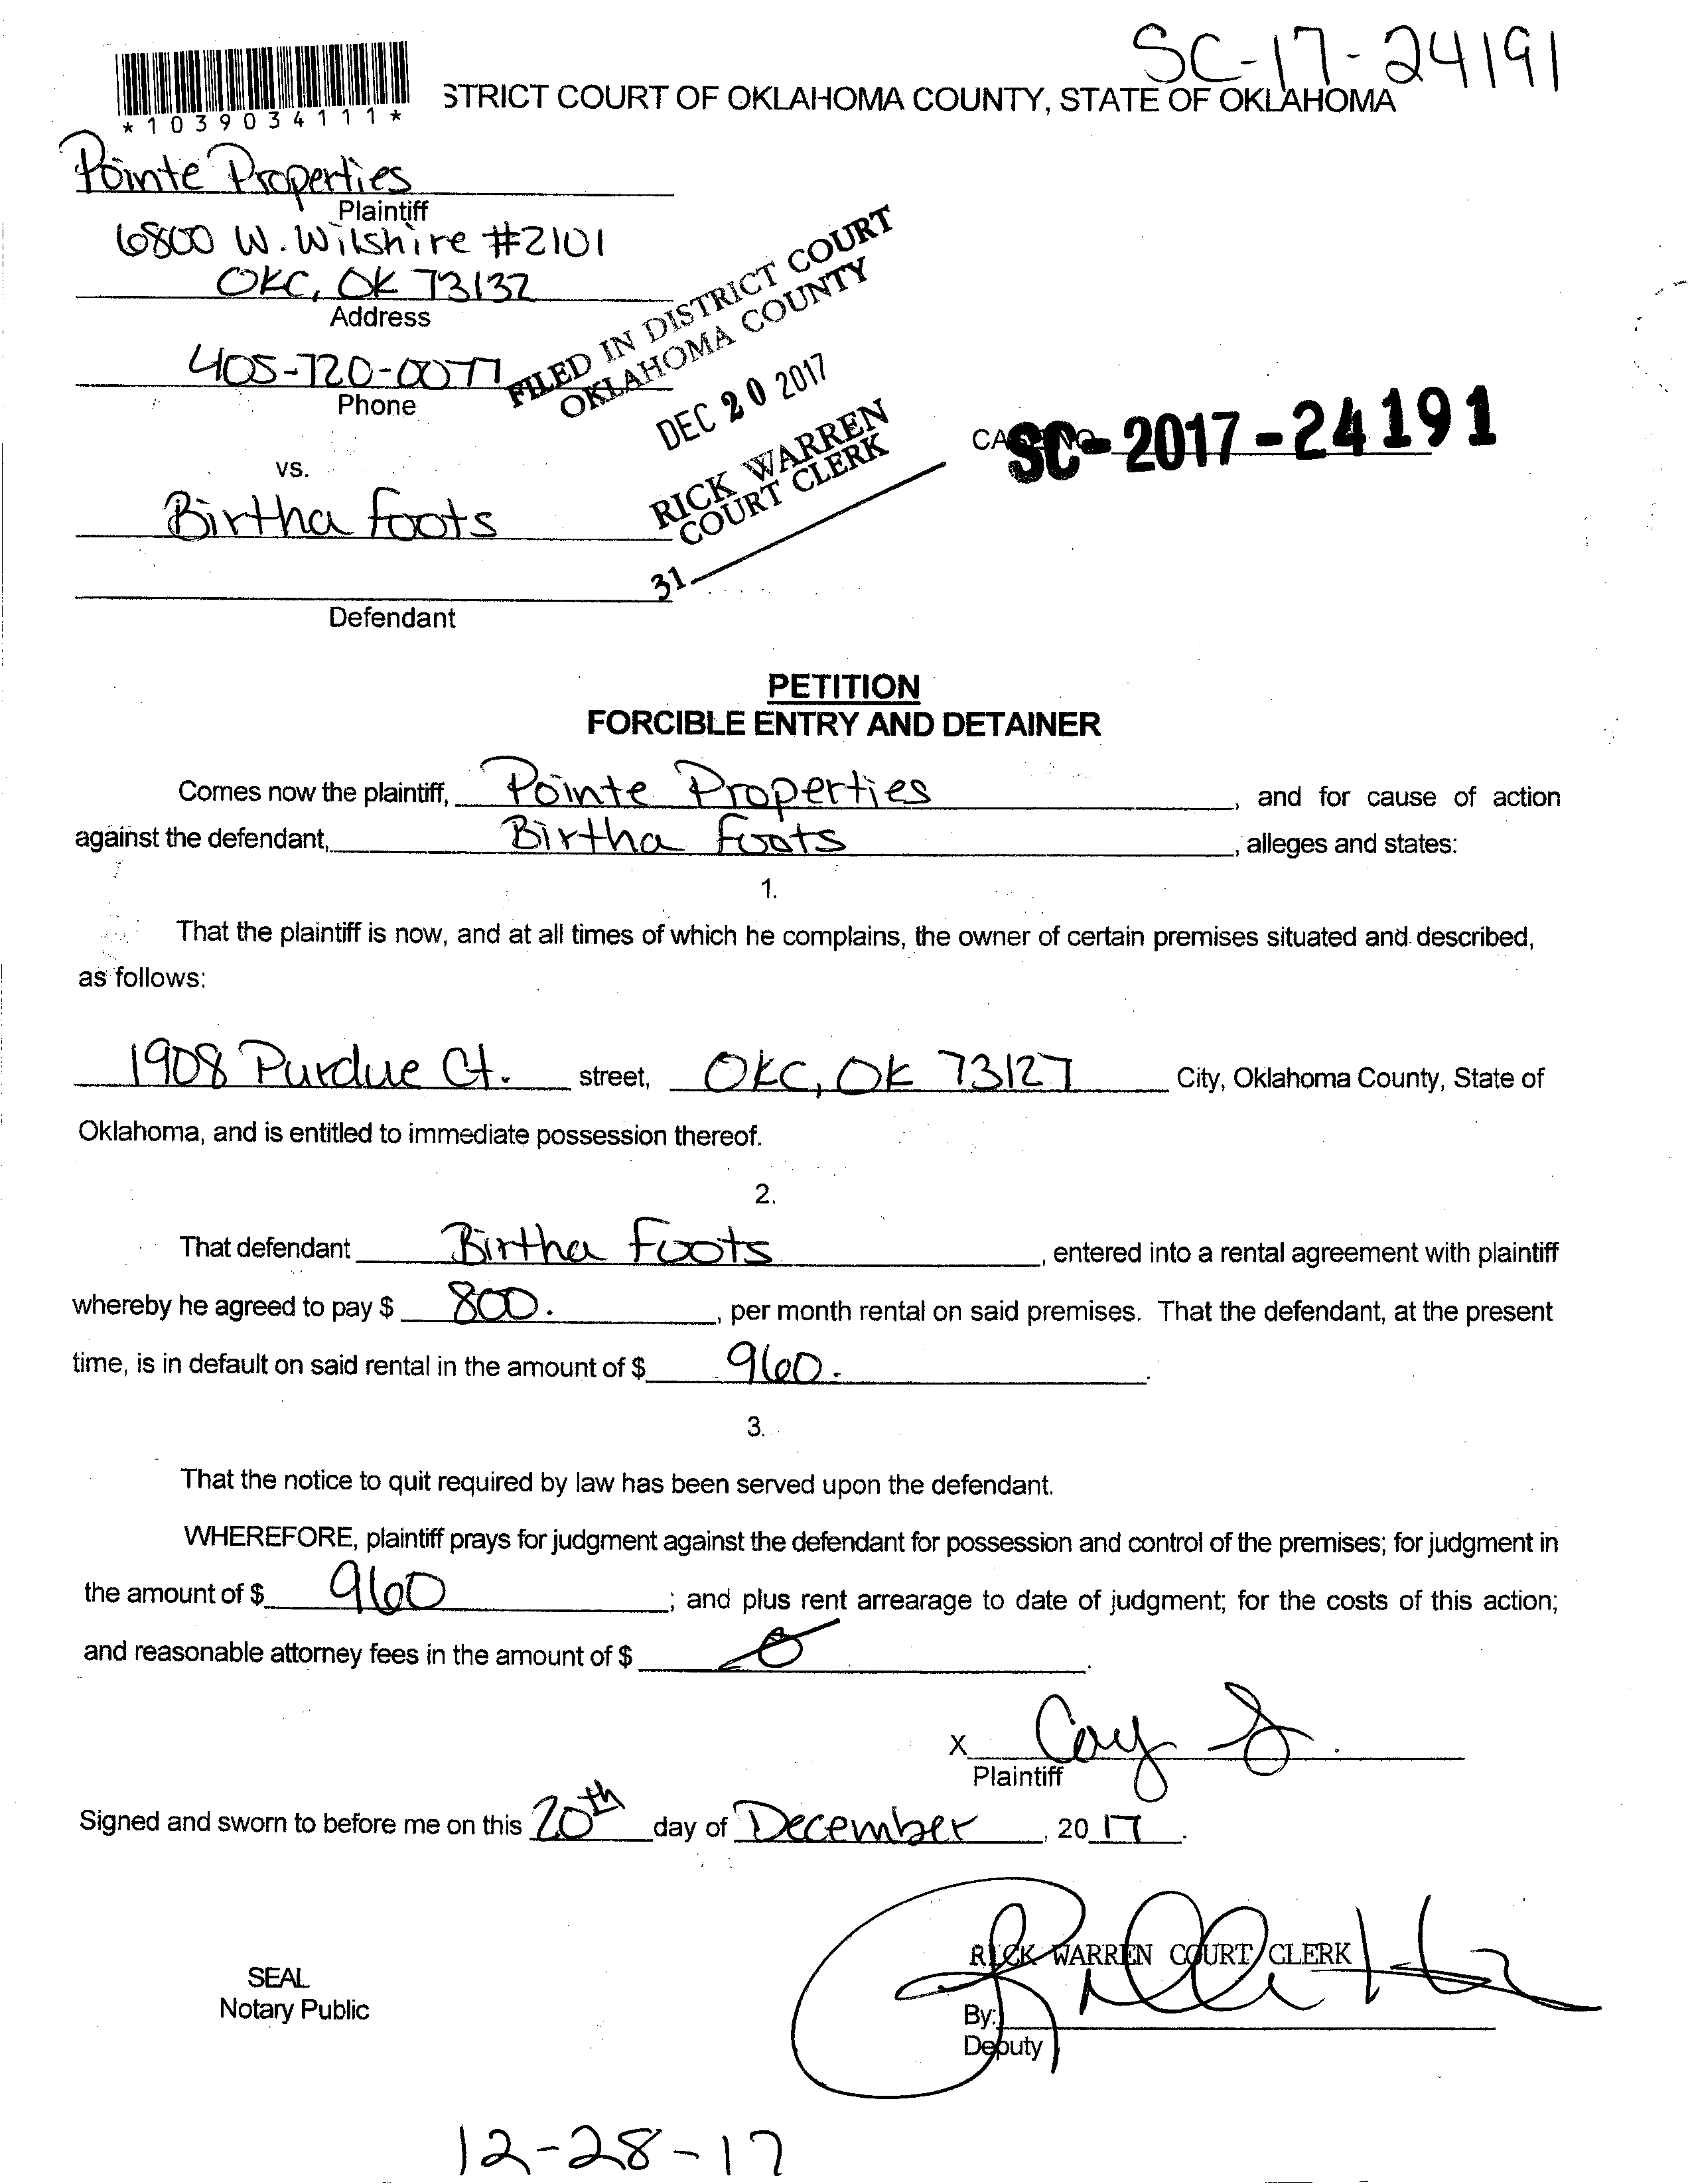 SC-17-24191
STRICT COURT OF OKLAHOMA COUNTY, STATE OF OKLAHOMA
*1039034111*
Pointe Properties
Plaintiff
6800 W. Wilshire #2101
OKC, OK 73132
Address
405-720-0077
Phone
FILED IN DISTRICT COURT
OKLAHOMA COUNTY
DEC 20 2017
RICK WARREN
COURT CLERK
31
SC-2017-24191
vs.
Birtha Foots
Defendant
PETITION
FORCIBLE ENTRY AND DETAINER
Comes now the plaintiff, Pointe Properties, and for cause of action
against the defendant, Birtha Foots, alleges and states:
1.
That the plaintiff is now, and at all times of which he complains, the owner of certain premises situated and described,
as follows:
1908 Purdue Ct. street, OKC, OK 73127 City, Oklahoma County, State of
Oklahoma, and is entitled to immediate possession thereof.
2.
That defendant Birtha Foots, entered into a rental agreement with plaintiff
whereby he agreed to pay $ 800., per month rental on said premises. That the defendant, at the present
time, is in default on said rental in the amount of $ 960.
3.
That the notice to quit required by law has been served upon the defendant.
WHEREFORE, plaintiff prays for judgment against the defendant for possession and control of the premises; for judgment in
the amount of $ 960; and plus rent arrearage to date of judgment; for the costs of this action;
and reasonable attorney fees in the amount of $ 0.
X
Plaintiff
Signed and sworn to before me on this 20th day of December, 2017.
RICK WARREN COURT CLERK
SEAL
Notary Public
By:
Deputy
12-28-17